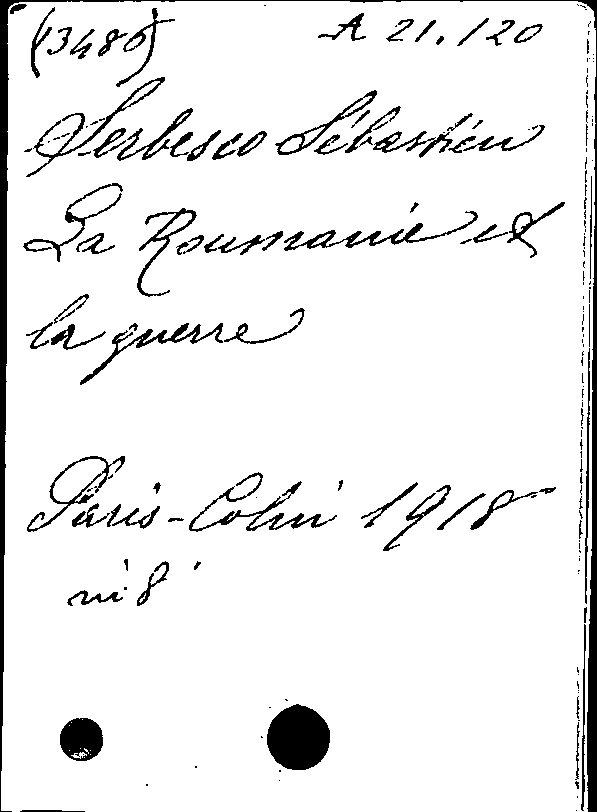 (3486) A 21.120
Serbesco Sébastien
La Roumanie et
la guerre
Paris - Colin 1918
in 8°